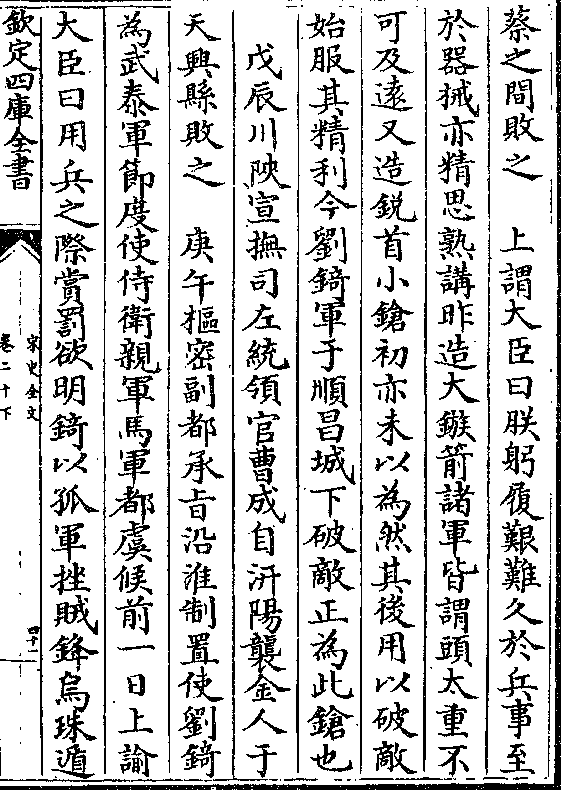 蔡之間敗之　　上謂大臣曰朕躬履艱難久於兵事至
於器械亦精思熟講昨造大鏃箭諸軍皆謂頭太重不
可及遠又造鋭首小鎗初亦未以為然其後用以破敵
始服其精利今劉錡軍于順昌城下破敵正為此鎗也
戊辰川陜宣撫司左統領官曹成自汧陽襲金人于
天興縣敗之　　庚午樞密副都承旨沿淮制置使劉錡
為武泰軍節度使侍衛親軍馬軍都虞候前一日上諭
大臣曰用兵之際賞罰欲明錡以孤軍挫賊鋒烏珠遁
欽定四庫全書
宋史全文
卷二十下
四十一